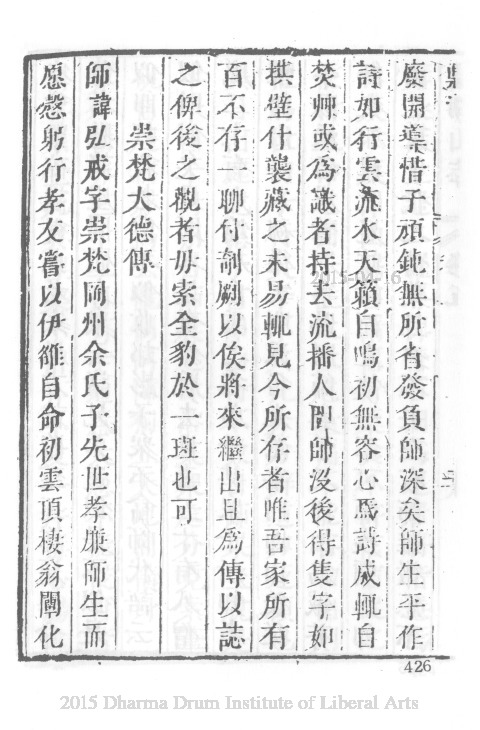 縻開導惜子頑鈍無所省發負師深矣師生平作
詩如行雲流水天籟自鳴初無容心爲詩成輒自
焚艸或爲識者持去流播人間師沒後得隻字如
拱璧什襲藏之未易輒見今所存者唯吾家所有
百不存一聊付剞劂以俟將來繼出且爲傳以誌
之俾後之觀者毋索全豹於一斑也可
崇梵大德傳
師諱弘戒字崇梵岡州余氏子先世孝廉師生而
愿慤躬行孝友嘗以伊雒自命初雲頂棲翁闡化
426
2015 Dharma Drum Institute of Liberal Arts